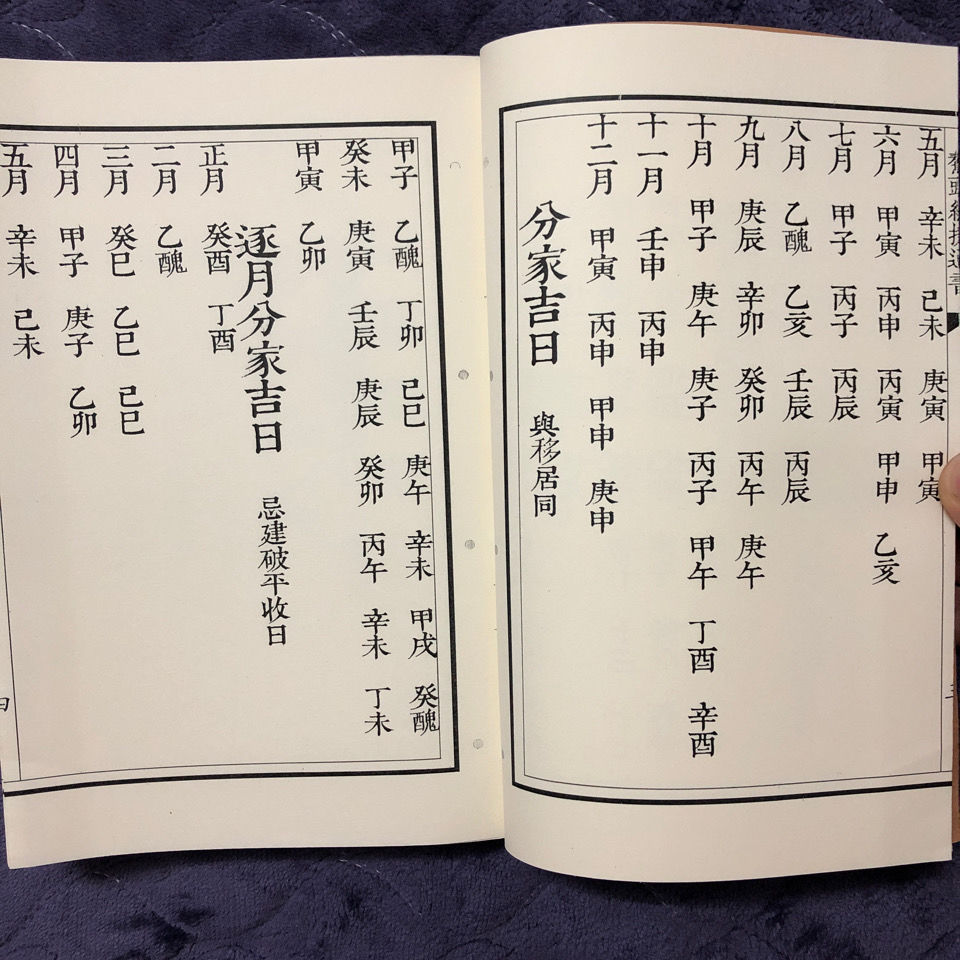 五月 辛未 己未 庚寅 甲寅
六月 甲寅 丙申 丙寅 甲申 乙亥
七月 甲子 丙子 丙辰
八月 乙醜 乙亥 壬辰 丙辰
九月 庚辰 辛卯 癸卯 丙午 庚午
十月 甲子 庚午 庚子 丙子 甲午 丁酉 辛酉
十一月 壬申 丙申
十二月 甲寅 丙申 甲申 庚申
分家吉日 與移居同
甲子 乙醜 丁卯 己巳 庚午 辛未 甲戌 癸醜
癸未 庚寅 壬辰 庚辰 癸卯 丙午 辛未 丁未
甲寅 乙卯
逐月分家吉日 忌建破平收日
正月 癸酉 丁酉
二月 乙醜
三月 癸巳 乙巳 己巳
四月 甲子 庚子 乙卯
五月 辛未 己未
四